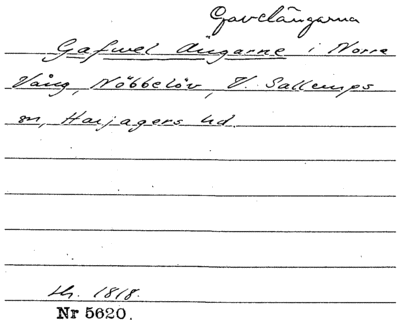 Gavelängarna
Gafwel Ängarne i Norra
Vång, Nöbbelöv, V. Sallerups
sn, Harjagers hd.
Lh. 1818.
Nr 5620.